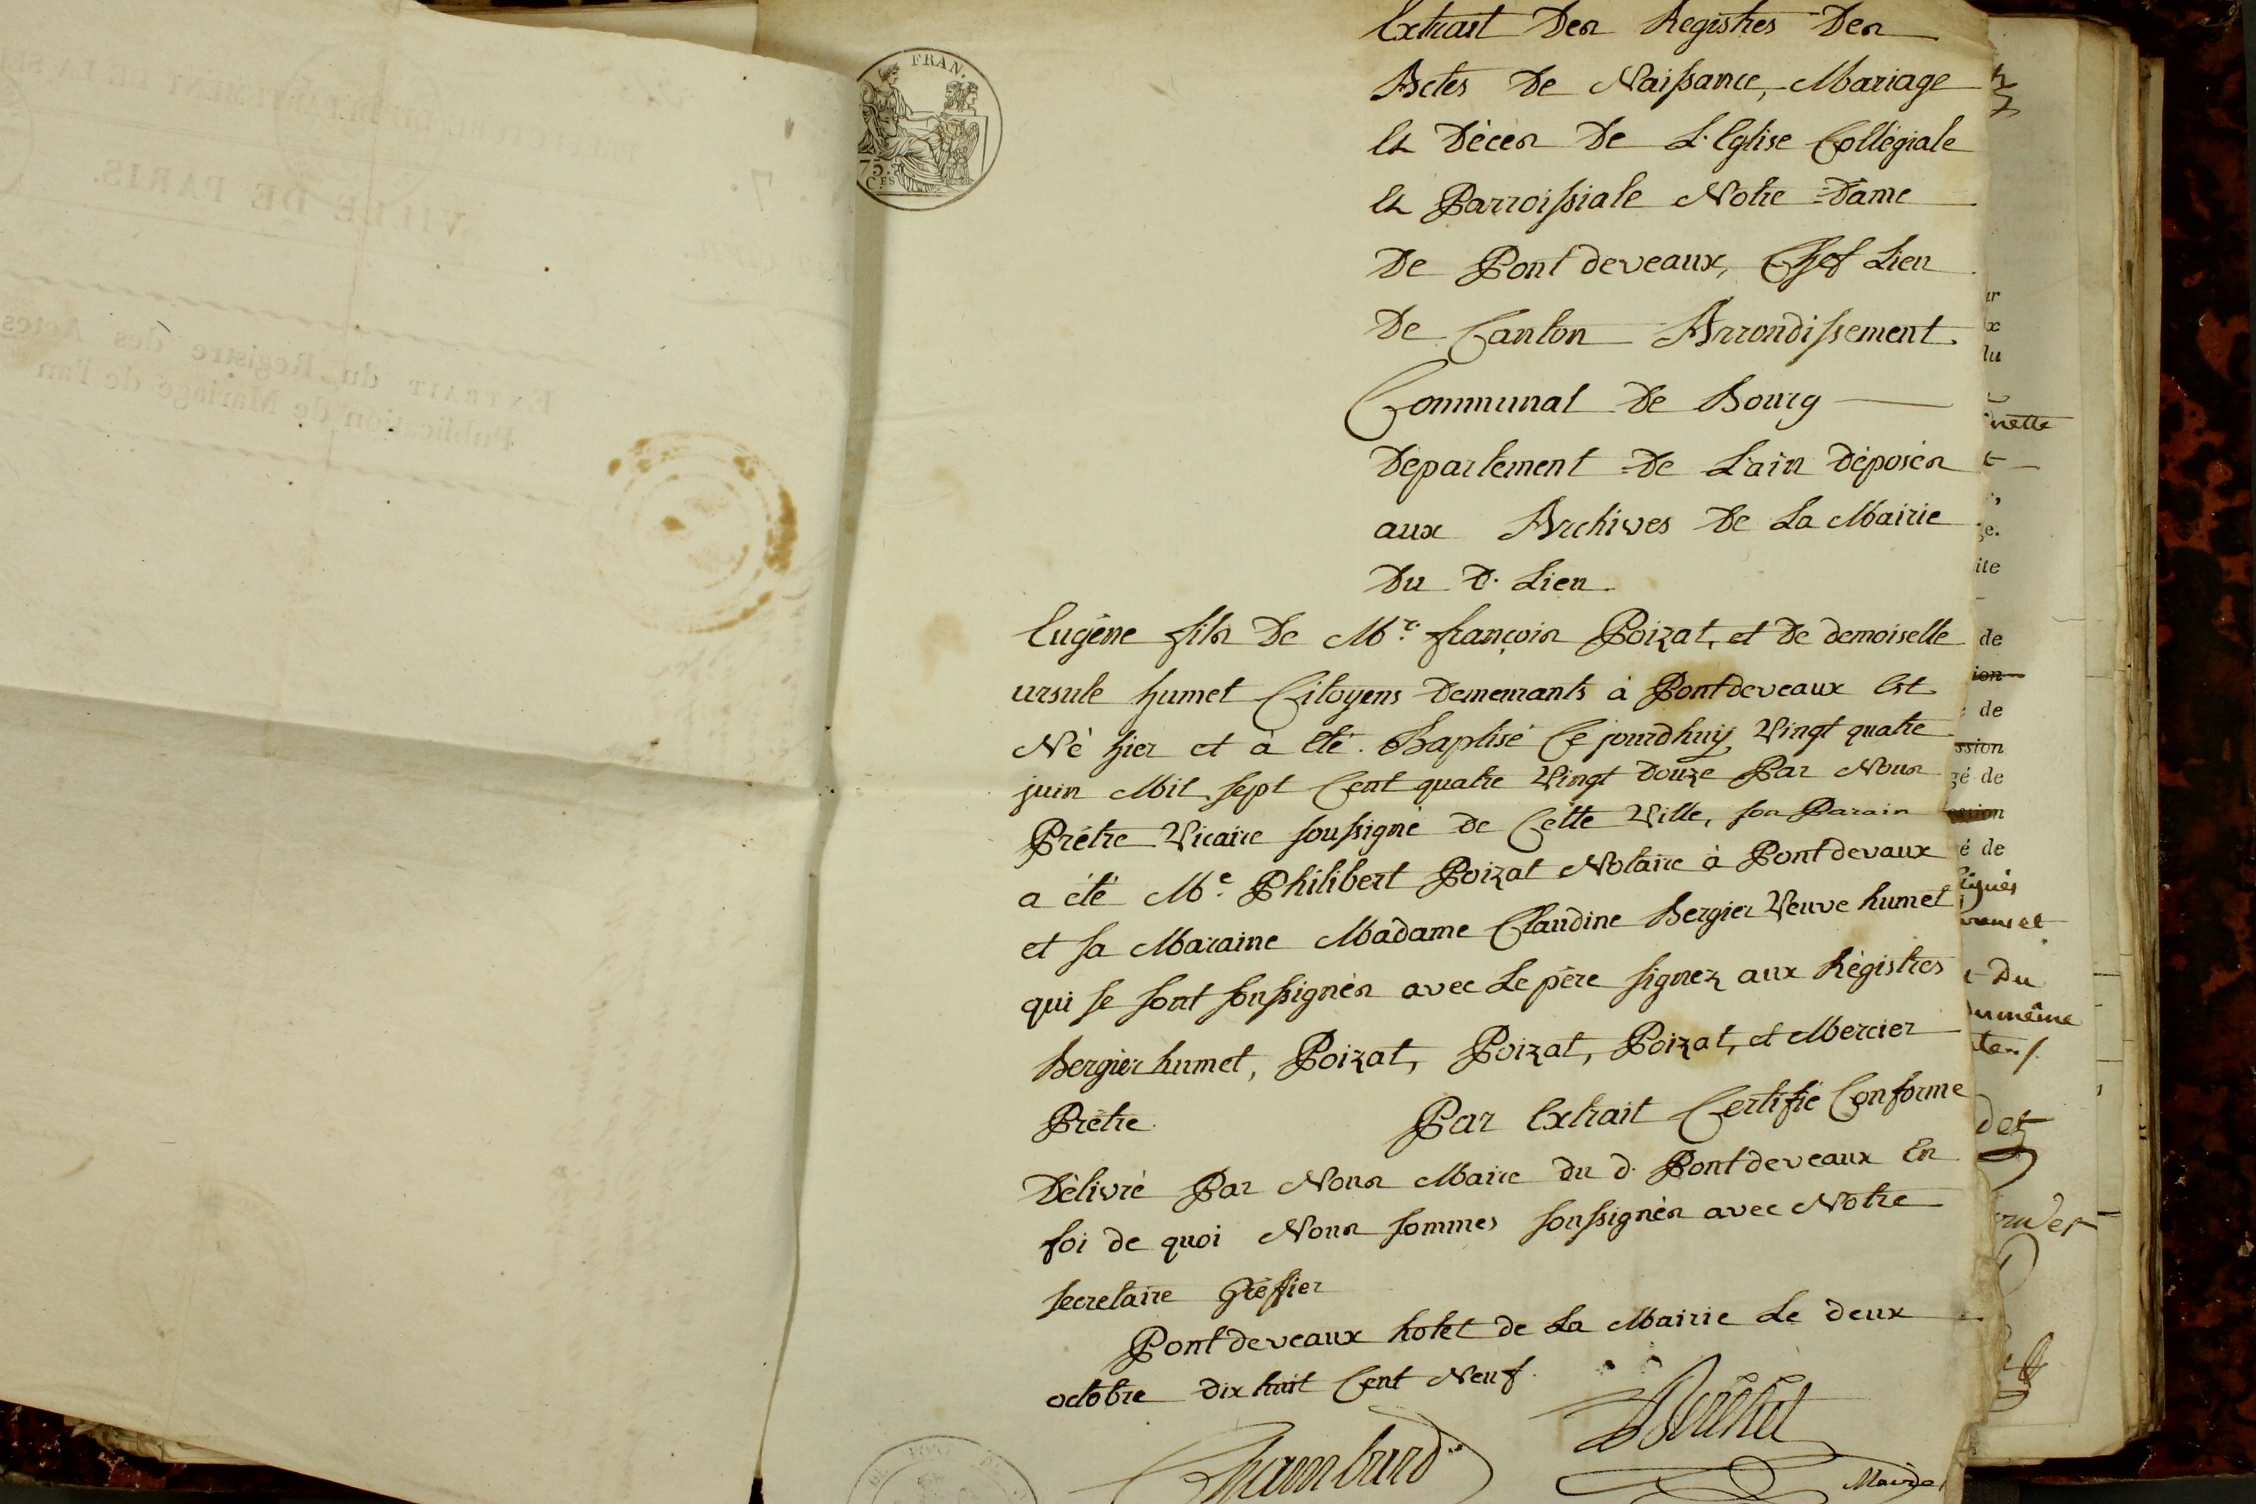 FRAN.
75.
C.ES
Extrait Des Registres Des
Actes De Naissance, Mariage
Et Décès De L'Eglise Collégiale
Et Parroissiale Notre =Dame
De Pontdeveaux, Chef Lieu
De Canton Arrondissement
Communal De Bourg
Département =De L'ain Déposés
aux Archives De La Mairie
Du D. Lieu.
Eugêne fils De Mr. françois Poizat, et De demoiselle
ursule humet Citoyens Demeurants à Pontdeveaux Est
Né hier et à Eté Baptisé Cejourdhuy Vingt quatre
juin Mil sept Cent quatre Vingt Douze Par Nous
Prêtre Vicaire soussigné De Cette Ville, son Parain
a été Me. Philibert Poizat Notaire à Pontdevaux
et sa Maraine Madame Claudine Bergier Veuve humet
qui se sont soussignés avec Le père signez aux Régistres
Bergier humet, Poizat, Poizat, Poizat, et Mercier
Prêtre. Par Extrait Certifié Conforme
Délivré Par Nous Maire Du d. Pontdeveaux En
foi de quoi Nous sommes soussignés avec Notre
secretaire Gréffier
Pontdeveaux hotel de La Mairie Le deux
octobre dix huit Cent Neuf.
Chamburd
Maire
VILLE DE PARIS.
EXTRAIT du Registre des Actes
Publication de Mariage de l'an
nette
de
ion
de
ssion
gé de
é de
Du
du même